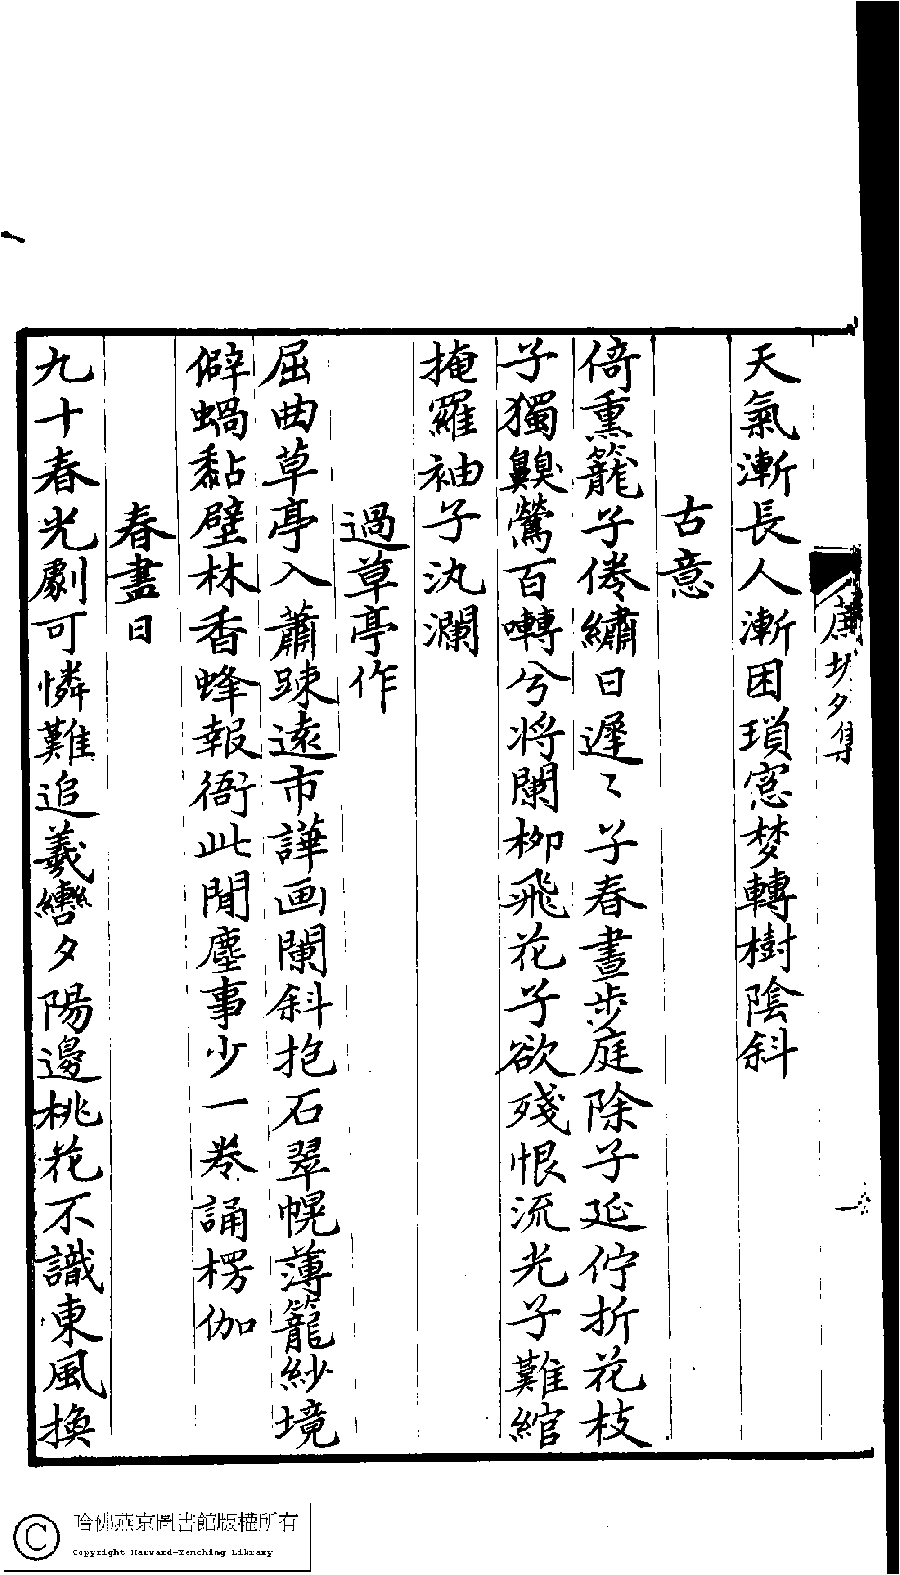 天氣漸長人漸困瑣窓梦轉樹陰斜
古意
倚熏籠子倦繡日遲〻子春晝步庭除子延佇折花枝
子獨齅鶯百囀兮将闌柳飛花子欲殘恨流光子難綰
掩羅袖子汍瀾
過草亭作
屈曲草亭入蕭踈遠市譁画闌斜抱石翠幌薄籠紗境
僻蝸黏壁林香蜂報衙此閒塵事少一卷誦楞伽
春盡日
九十春光劇可憐難追羲轡夕陽邊桃花不識東風換
哈佛燕京圖書館版權所有
Copyright Harvard-Yenching Library